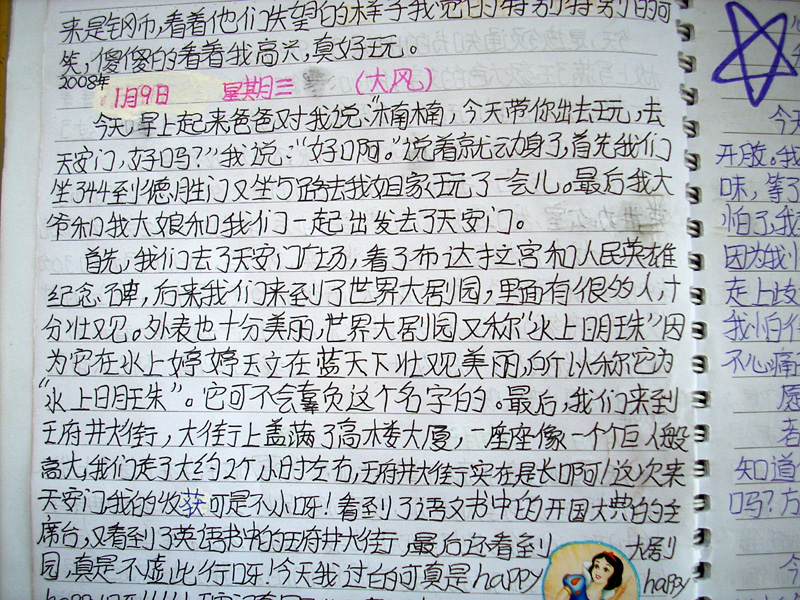 来是钢币,看着他们失望的样子我觉的特别特别的可
笑,傻傻的看着我高兴,真好玩。
2008年
1月9日 星期三 (大风)
今天,早上起来爸爸对我说:“楠楠,今天带你出去玩,去
天安门,好吗?”我说:“好啊。”说着就动身了,首先我们
坐了44到德胜门又坐5路去我姐家玩了一会儿。最后我大
爷和我大娘和我们一起出发去了天安门。
首先,我们去了天安门广场,看了布达拉宫和人民英雄
纪念碑,后来我们来到了世界大剧园,里面有很的人,十
分壮观。外表也十分美丽,世界大剧园又称“水上明珠”因
为它在水上婷婷玉立在蓝天下壮观美丽,所以称它为
“水上明珠”。它可不会辜负这个名字的。最后,我们来到
王府井大街,大街上盖满了高楼大厦,一座座像一个个巨人般
高大,我们走了大约2个小时左右,王府井大街实在是长啊!这次来
天安门我的收获可是不小呀!看到了语文书中的开国大典的主
席台,又看到了英语书中的王府井大街,最后还看到 大剧
园,真是不虚此行呀!今天我过的可真是happy happy
今天
开胶。我
味,等了
怕了,我
因为我
走上歧
我怕
不心痛
愿
者
知道
吗?方
今